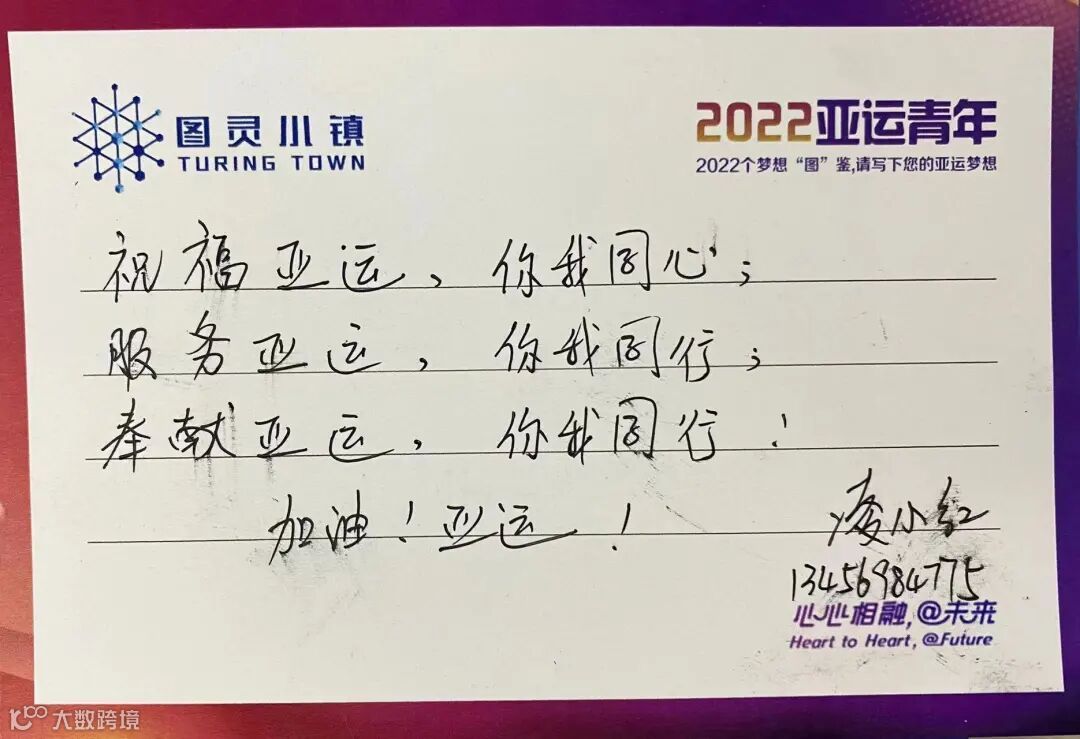 图灵小镇
TURING TOWN
2022亚运青年
2022个梦想“图”鉴,请写下您的亚运梦想
祝福亚运、你我同心；
服务亚运，你我同行；
奉献亚运，你我同行！
加油！亚运！
小红
13456984775
心心相融,@未来
Heart to Heart, @Future
大数跨境